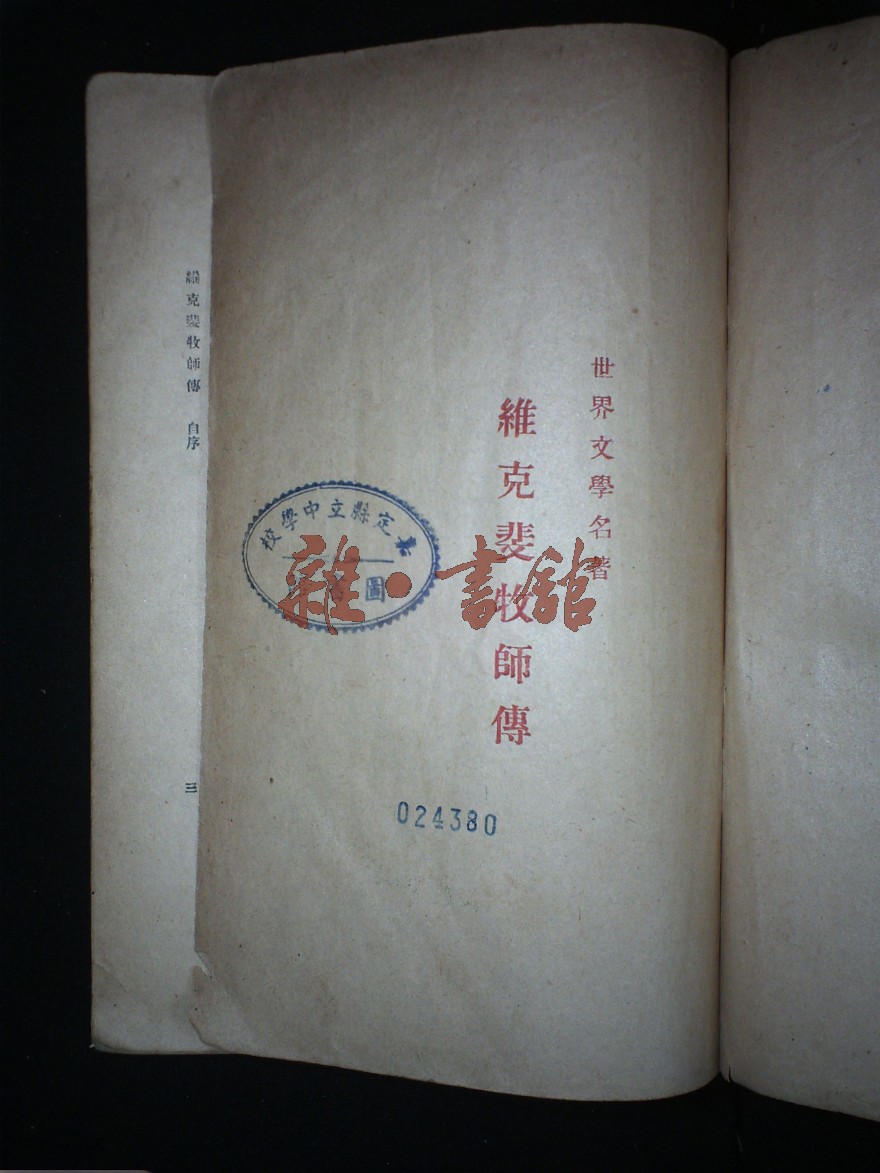 世界文學名著
維克斐牧師傳
嘉定縣立中學校
圖書館
024380
維克斐牧師傳 自序
三
雜·書館